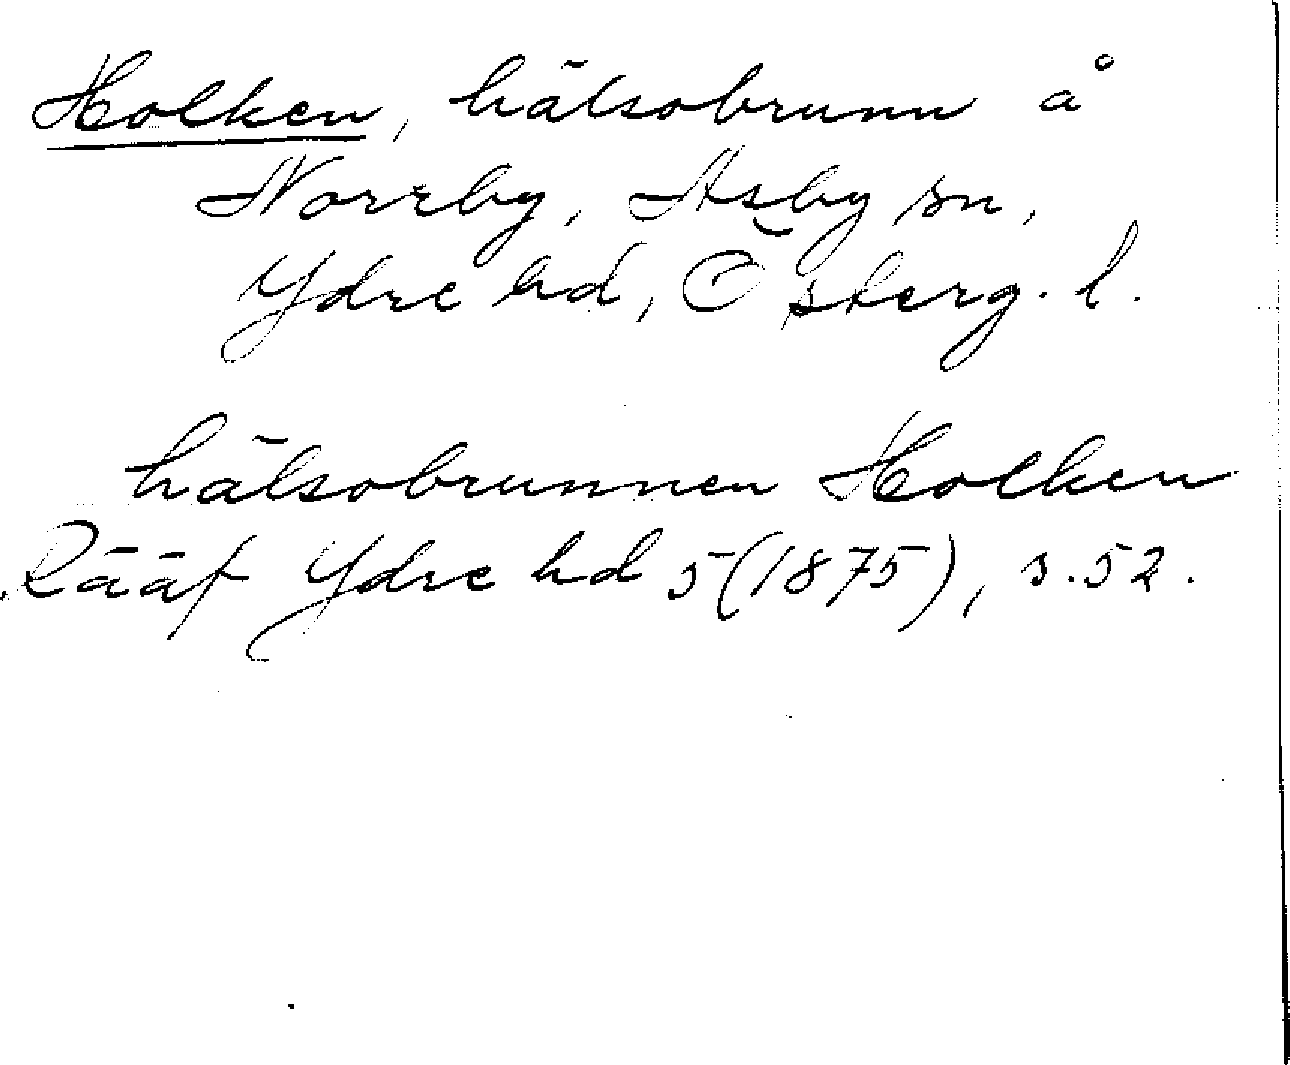 Holken, hälsobrunn å
Norrby, Asby sn,
Ydre hd, Österg. l.
hälsobrunnen Holken
Rääf Ydre hd 5 (1875), s. 52.